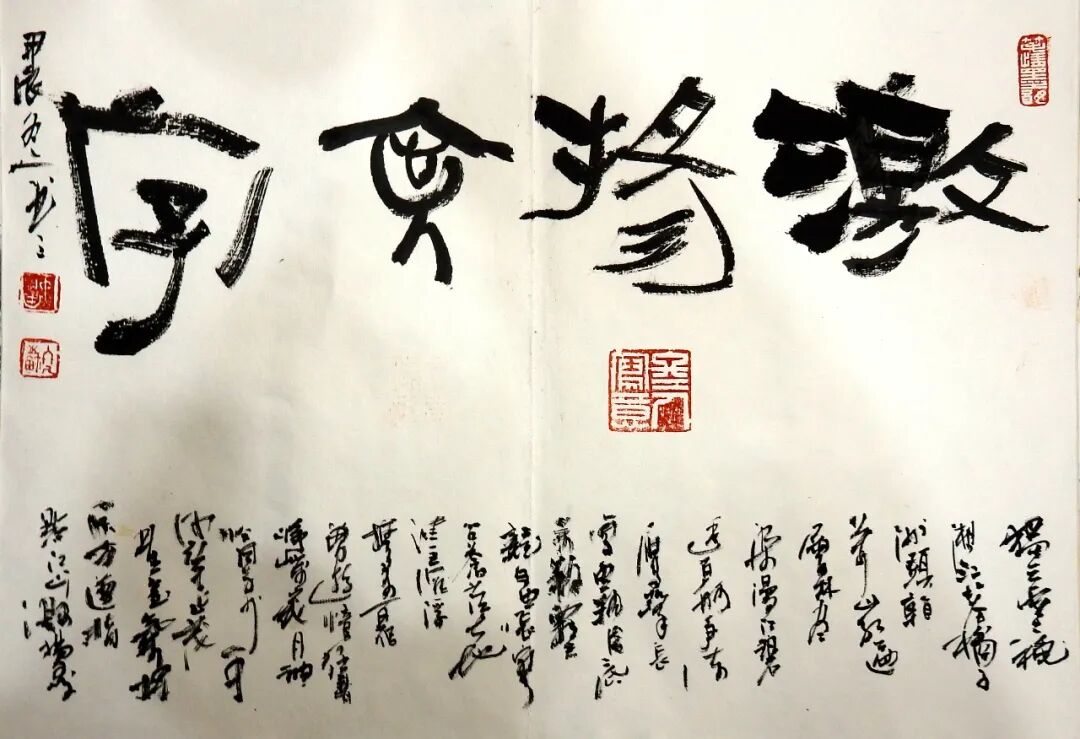 激揚文字
獨立寒秋
湘江北去橘子
洲頭看
萬山紅遍
層林盡
染漫江碧
透百舸爭流
鷹擊長
空魚翔淺底
萬類霜天
競自由悵寥
問蒼茫大地
誰主沉浮
攜來百侶
曾遊憶往昔
崢嶸歲月稠
恰同學少年
風華正茂
書生意氣揮
斥方遒指
點江山激揚文字
甲辰